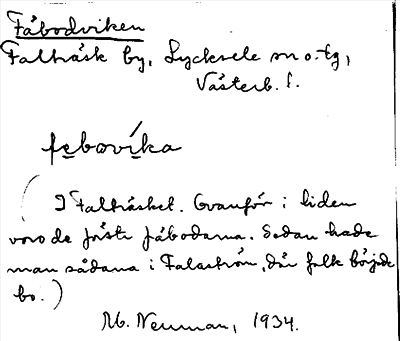 Fäbodviken
Falträsk by, Lycksele sn o. tg,
Västerb. l.
febωvíka
( I Falträsket. Ovanför i liden
voro de första fäbodarna. Sedan hade
man sådana i Falaström, där folk började
bo. )
M. Neuman, 1934.